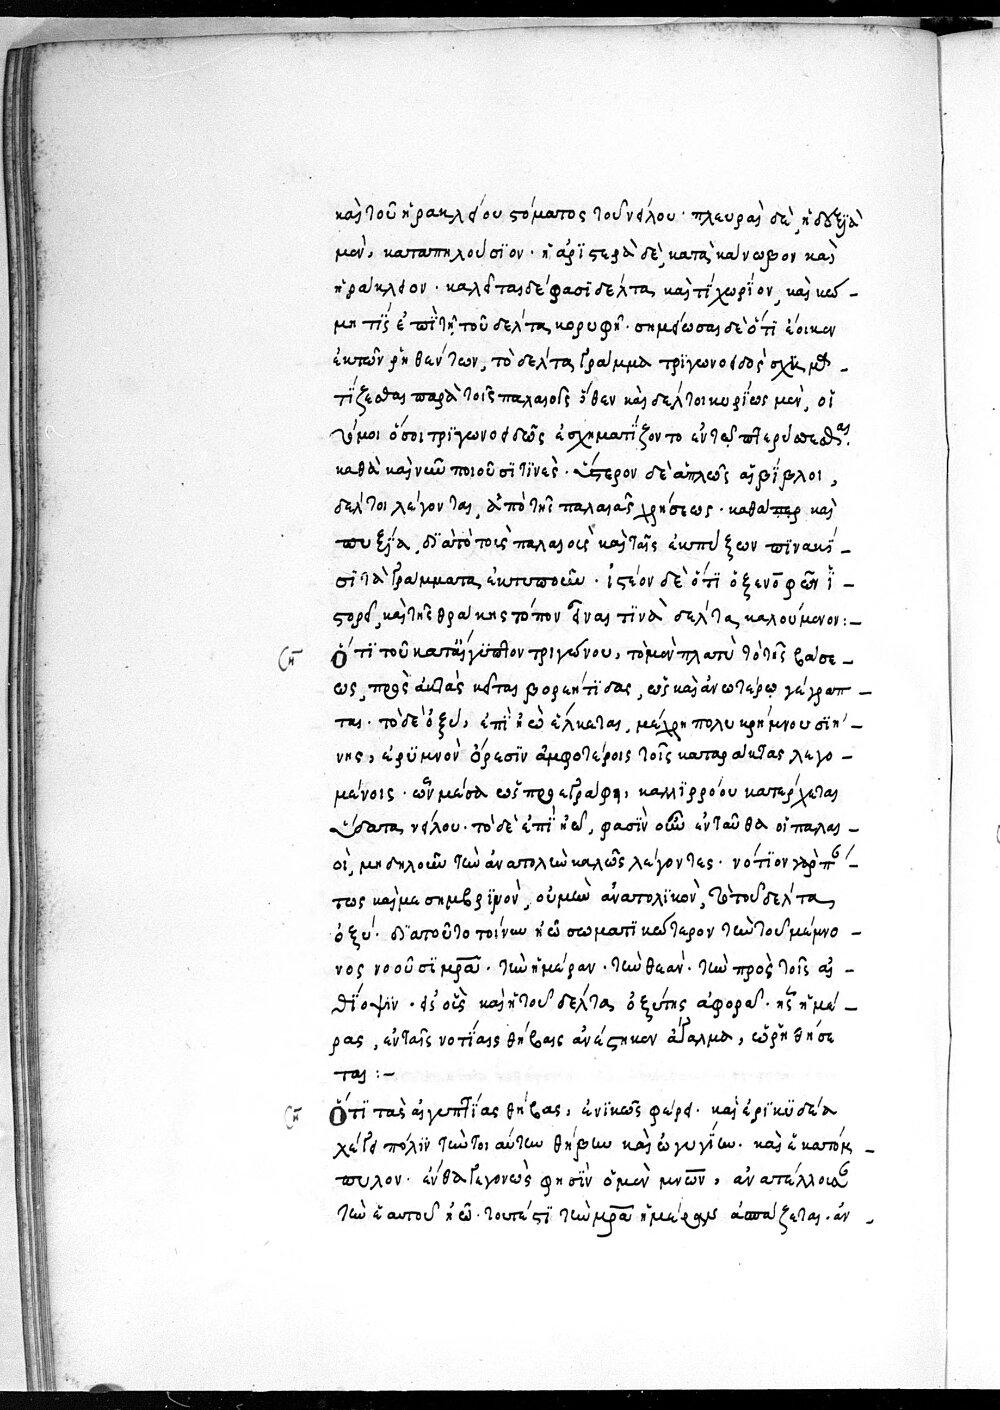 καὶ τοῦ ἡρακλείου στόματος τοῦ νείλου· πλευραὶ δὲ, ἡ δεξιὰ
μὲν, κατὰ πηλούσϊον· ἡ ἀρϊστερὰ δὲ, κατὰ κάνωβον καὶ
ἡράκλειον· καλεῖται δέ φασι δέλτα καὶ τὶ χωρίον, καὶ κώ-
μη τϊς ἐπὶ τῇ τοῦ δέλτα κορυφῇ· σημείωσαι δὲ ὅτϊ ἔοικεν
ἐκ τῶν ῥηθέντων, τὸ δέλτα γράμμα τρϊγωνοειδὲς σχηματ-
τίζεσθαι παρὰ τοῖς παλαιοῖς ὅθεν καὶ δέλτοι κυρίως μὲν, οἱ
τόμοι ὅσοι τρϊγωνοειδῶς ἐσχηματίζοντο ἐν τῷ πτερύσσεσθαι,
καθὰ καὶ νῦν ποιοῦσί τϊνὲς· ὕστερον δὲ ἁπλῶς αἱ βίβλοι,
δέλτοι λέγονται, ἀπὸ τῆς παλαιᾶς χρήσεως· καθάπερ καὶ
πυξία, δϊὰ τὸ τοὺς παλαιοὺς καὶ ταῖς ἐκ πύξων πϊνακί-
σϊ τὰ γράμματα ἐκτυποῦν· ἰστέον δὲ ὅτϊ ὁ ξενοφῶν ἱ-
στορεῖ, καὶ τῆς θράκης τόπον εἶναι τϊνὰ δέλτα καλούμενον:-
ση Ὅτϊ τοῦ κατ' αἴγϋπτον τριγώνου, τὸ μὲν πλατὺ τὸ τῆς βάσε-
ως, πρὸς ἀκτὰς κεῖται βορειήτϊδας, ὡς καὶ ἀνωτέρω γέγραπ-
ται· τὸ δὲ ὀξύ, ἐπὶ ἠῶ ἕλκεται, μέχρη πολυκρήμνου σϊή-
νης, ἐρϋμνὸν ὄρεσϊν ἀμφοτέροις τοῖς καταράκταις λεγο-
μένοις· ὧν μέσα ὡς προεγράφη, καλλϊρρόου κατέρχεται
ὕδατα νείλου· τὸ δὲ ἐπὶ ἠῶ, φασϊν οὖν ἐνταῦθα οἱ παλαι-
οὶ, μὴ δηλοῦν τὴν ἀνατολὴν καλῶς λέγοντες· νότϊον γὰρ πάν-
τως καὶ μεσημβρϊνὸν, οὐ μὴν ἀνατολϊκὸν, τὸ τοῦ δέλτα
ὀξύ· δϊὰ τοῦτο τοίνυν ἠῶ σωματϊκώτερον τὴν τοῦ μέμνο-
νος νοοῦσϊ μητέρα· τὴν ἡμέραν· τὴν θεὰν· τὴν πρὸς τοῖς αἰ-
θϊοψϊν· εἰς οὓς καὶ ἡ τοῦ δέλτα ὀξύτης ἀφορᾷ· ἧς ἡμέ-
ρας, ἐν ταῖς νοτίαις θήβαις ἀνέστηκεν ἄγαλμα, ὡς ῥηθήσε
ται:-
ση Ὅτϊ τὰς αἰγυπτίας θήβας, ἑνϊκῶς φέρει· καὶ ἐρϊκϋδέα
λέγει πόλϊν τὴν τοιαύτην θήβην καὶ ὠγυγίην· καὶ ἑκατόμ-
πυλον· ἔνθα γεγονὼς φησϊν ὁ μέμνων, ἀνατέλλουσαν
τὴν ἑαυτοῦ ἠῶ· τουτέστϊ τὴν μητέρα ἡμέραν ἀσπάζεται· ἀν-